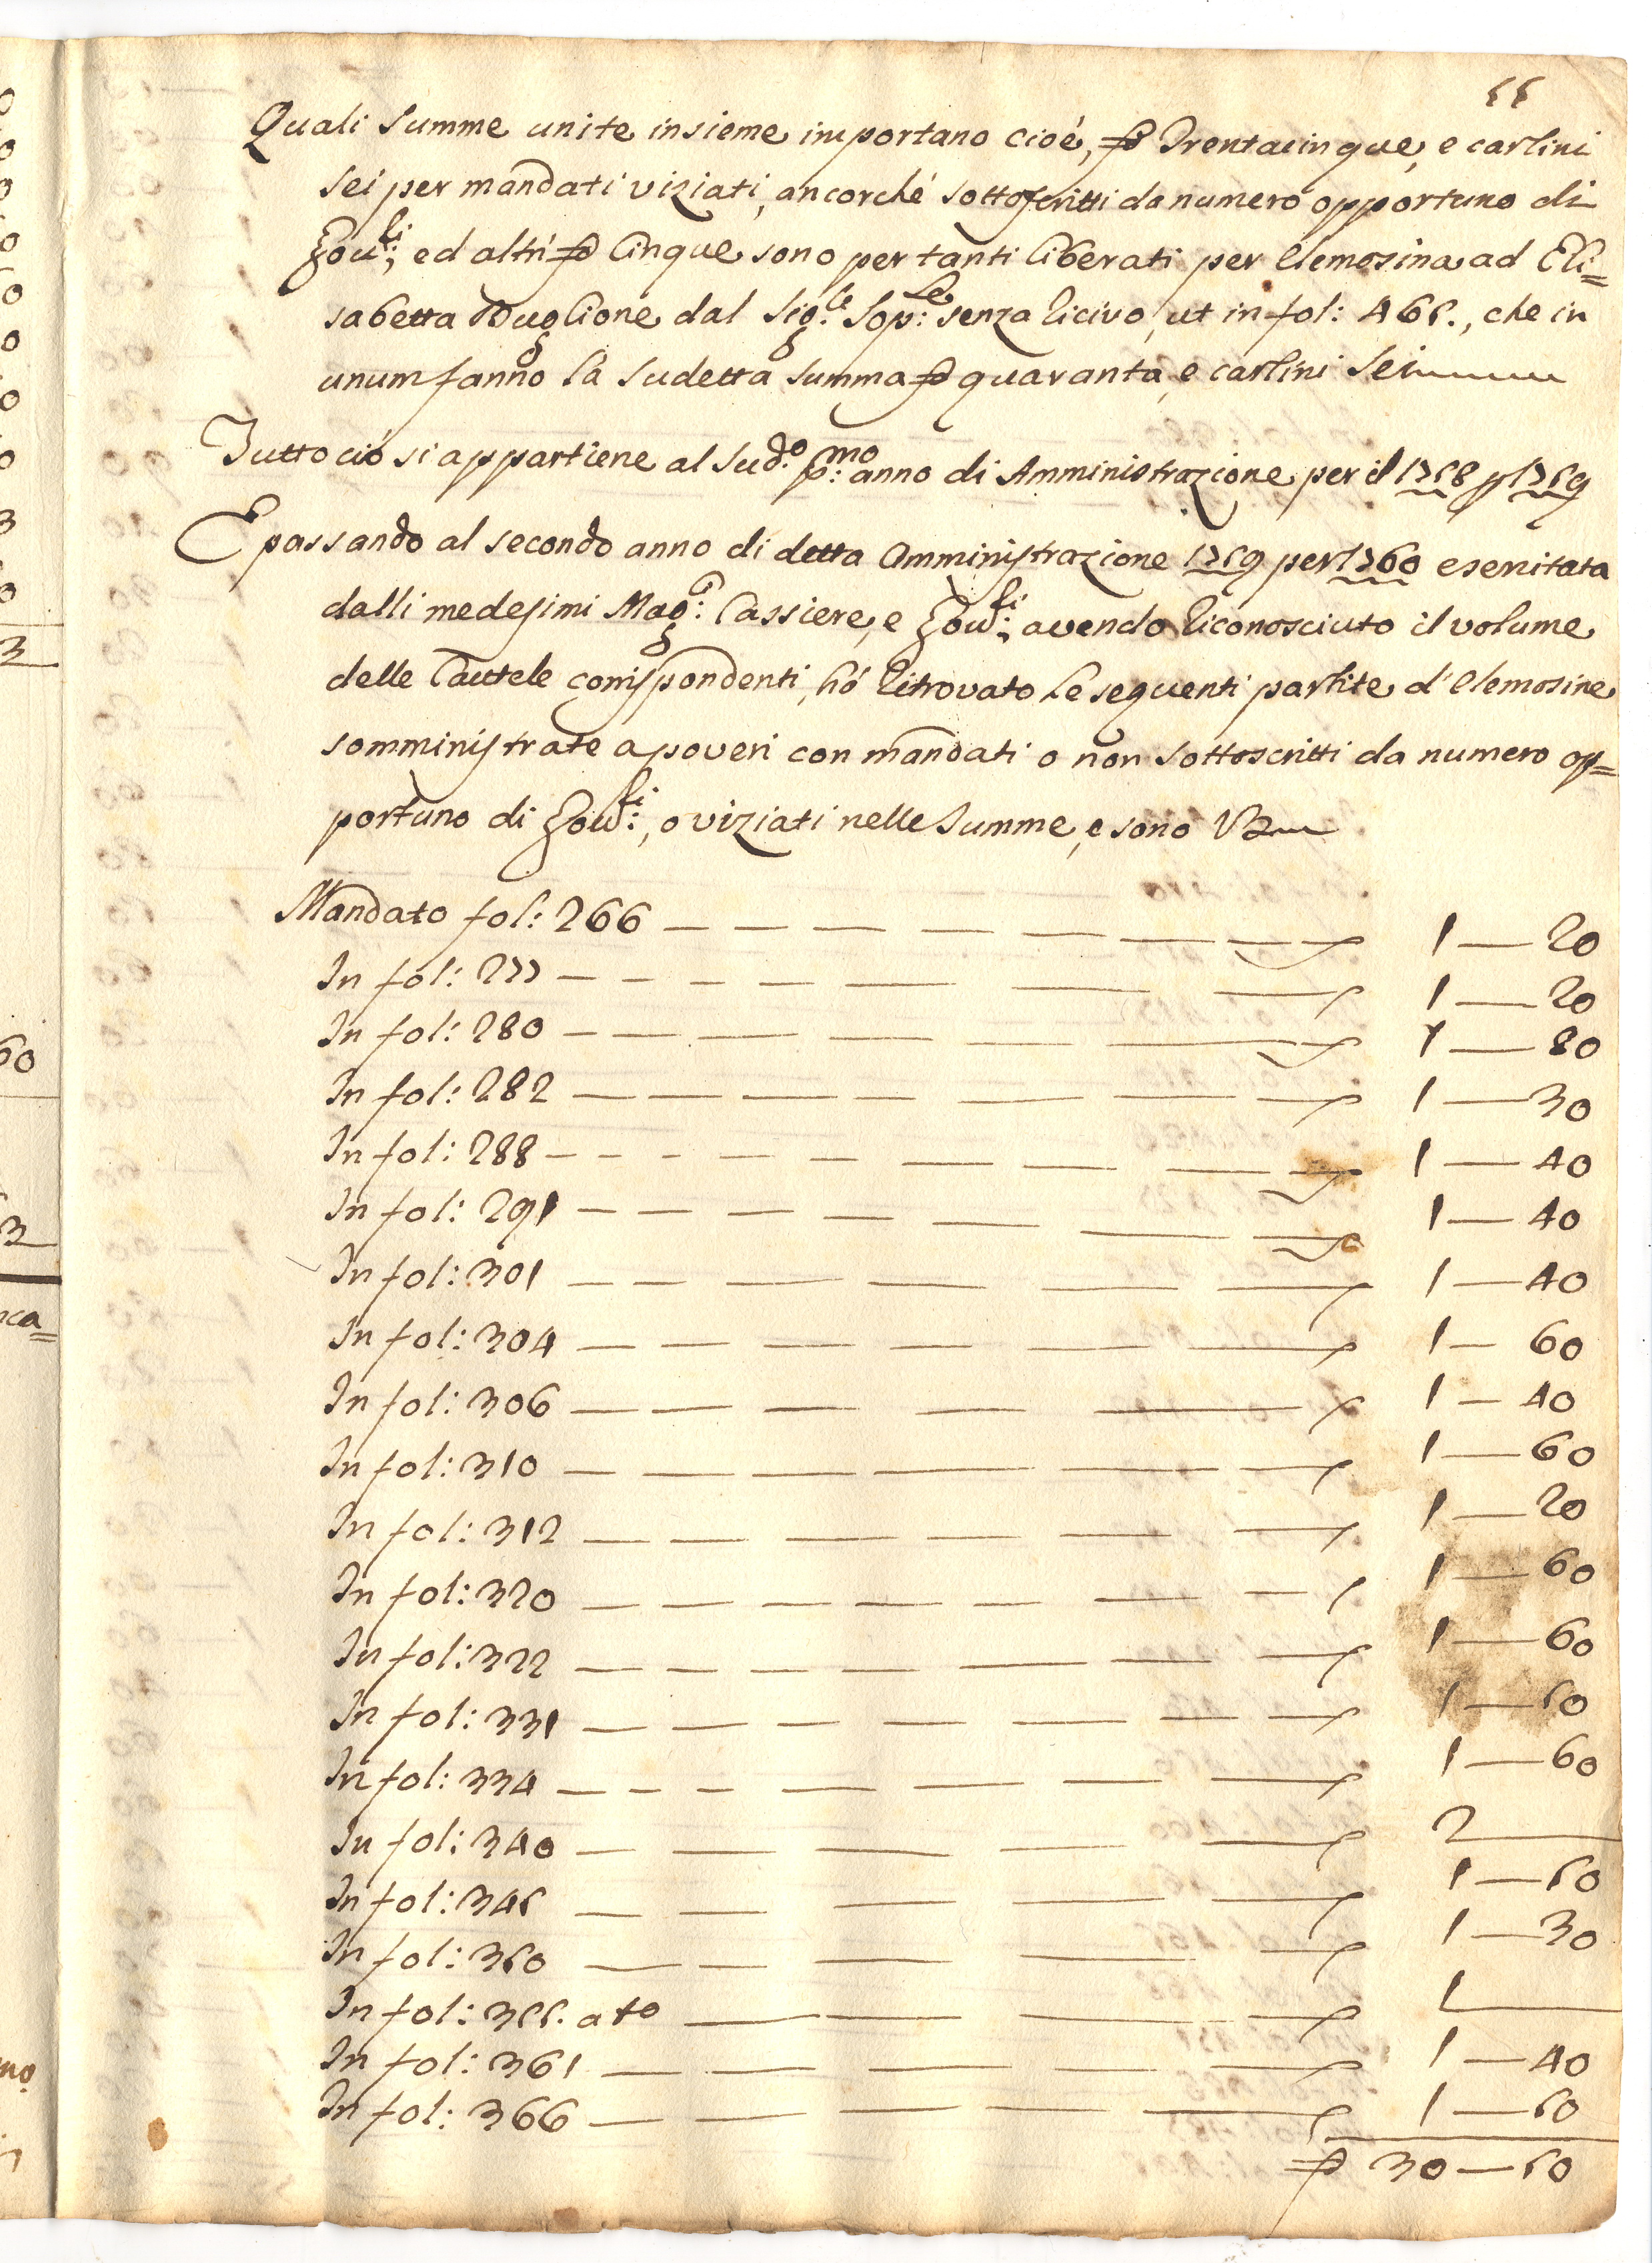 55
Quali summe unite insieme importano cioè, D. Trentacinque, e carlini
sei per mandati viziati, ancorchè sottoscritti da numero opportuno di
Gov:ri, ed altri D. Cinque sono per tanti liberati per elemosina ad Eli=
sabetta Buglione dal Sig:re Sop:re senza ricivo, ut in fol: 465., che in
unum fanno la sudetta summa D. quaranta, e carlini sei
Tutto ciò si appartiene al sud:o p:mo anno di Amministrazione per il 1758 p 1759
E passando al secondo anno di detta Amministrazione 1759 per 1760 esercitata
dalli medesimi Mag:ci Cassiere, e Gov:ri, avendo riconosciuto il volume
delle Cautele corrispondenti, hò ritrovato le seguenti partite d'elemosine
somministrate a poveri con mandati o non sottoscritti da numero op=
portuno di Gov:ri, o viziati nelle summe, e sono Vz
Mandato fol: 266 — 1 — 20
In fol: 277 — 1 — 20
In fol: 280 — 1 — 80
In fol: 282 — 1 — 30
In fol: 288 — 1 — 40
In fol: 291 — 1 — 40
In fol: 301 — 1 — 40
In fol: 304 — 1 — 60
In fol: 306 — 1 — 40
In fol: 310 — 1 — 60
In fol: 312 — 1 — 20
In fol: 320 — 1 — 60
In fol: 322 — 1 — 60
In fol: 331 — 1 — 50
In fol: 334 — 1 — 60
In fol: 340 — 2 —
In fol: 345 — 1 — 50
In fol: 350 — 1 — 30
In fol: 355. a to — 1 —
In fol: 361 — 1 — 40
In fol: 366 — 1 — 50
D. 30 — 50